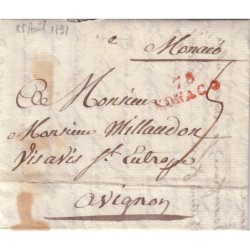 25 Avril 1791
Monaco
78
MONACO
A Monsieur
Monsieur Millaudon
Vis avis St Eutrope
5
avignon